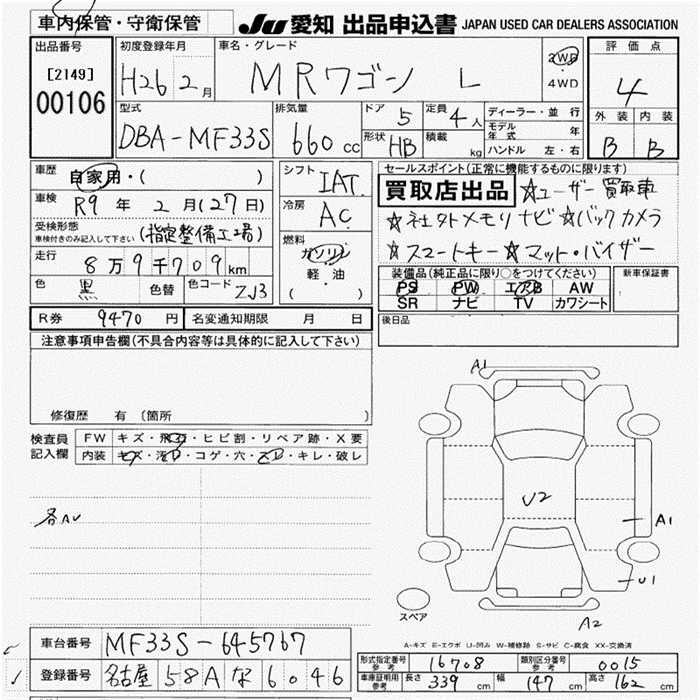 車内保管・守衛保管
JU 愛知 出品申込書 JAPAN USED CAR DEALERS ASSOCIATION
出品番号
[2149]
00106
初度登録年月
H26 2月
車名・グレード
MRワゴン L
2WD
・
4WD
評価点
4
外装 内装
B B
型式
DBA-MF33S
排気量
660 cc
ドア 5
形状 HB
定員 4人
積載 kg
ディーラー・並行
モデル年式 年
ハンドル 左・右
車歴
自家用・( )
車検
R9年 2月(27日)
受検形態
車検付きのみ記入して下さい
(指定整備工場)
走行
8万9千709km
色 黒 色替 色コード ZJ3
シフト
IAT
冷房
AC
燃料
ガソリン
軽・油
( )
セールスポイント(正常に機能するものに限ります)
買取店出品 ☆ユーザー買取車
☆社外メモリナビ☆バックカメラ
☆スマートキー☆マット・バイザー
装備品(純正品に限り○をつけてください)
PS PW エアB AW
SR ナビ TV カワシート
新車保証書
後日品
R券 9470円 名変通知期限 月 日
注意事項申告欄(不具合内容等は具体的に記入して下さい)
修復歴 有 (箇所 )
検査員
記入欄
FW キズ・飛石・ヒビ割・リペア跡・X要
内装 キズ・汚れ・コゲ・穴・スレ・キレ・破レ
各AU
A1
U2
A1
U1
A2
スペア
A-キズ E-エクボ U-凹み W-補修跡 S-サビ C-腐食 XX-交換済
車台番号 MF33S-645767
登録番号 名古屋 58A な 6046
形式指定番号
参考
16708
類別区分番号
参考
0015
車庫証明用
参考
長さ 339 cm 幅 147 cm 高さ 162 cm